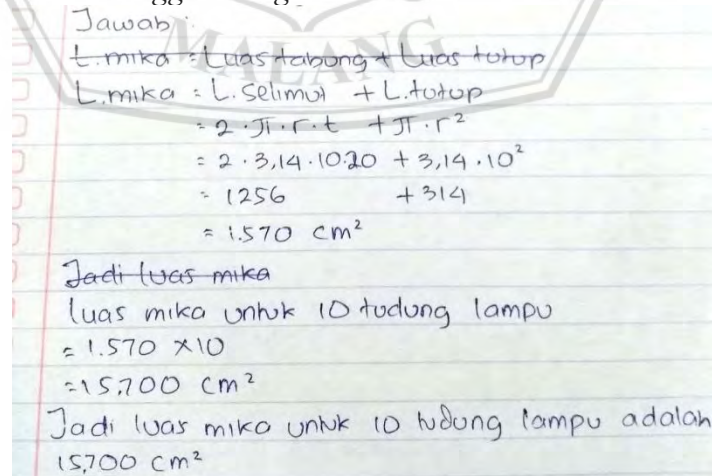 Jawab :
L.mika = Luas tabung + Luas tutup
MALANG
L.mika = L.Selimut + L.tutup
= 2 . π . r . t + π . r²
= 2 . 3,14 . 10.20 + 3,14 . 10²
= 1256 + 314
= 1.570 cm²
Jadi luas mika
luas mika untuk 10 tudung lampu
= 1.570 ×10
=15.700 cm²
Jadi luas mika untuk 10 tudung lampu adalah
15.700 cm²